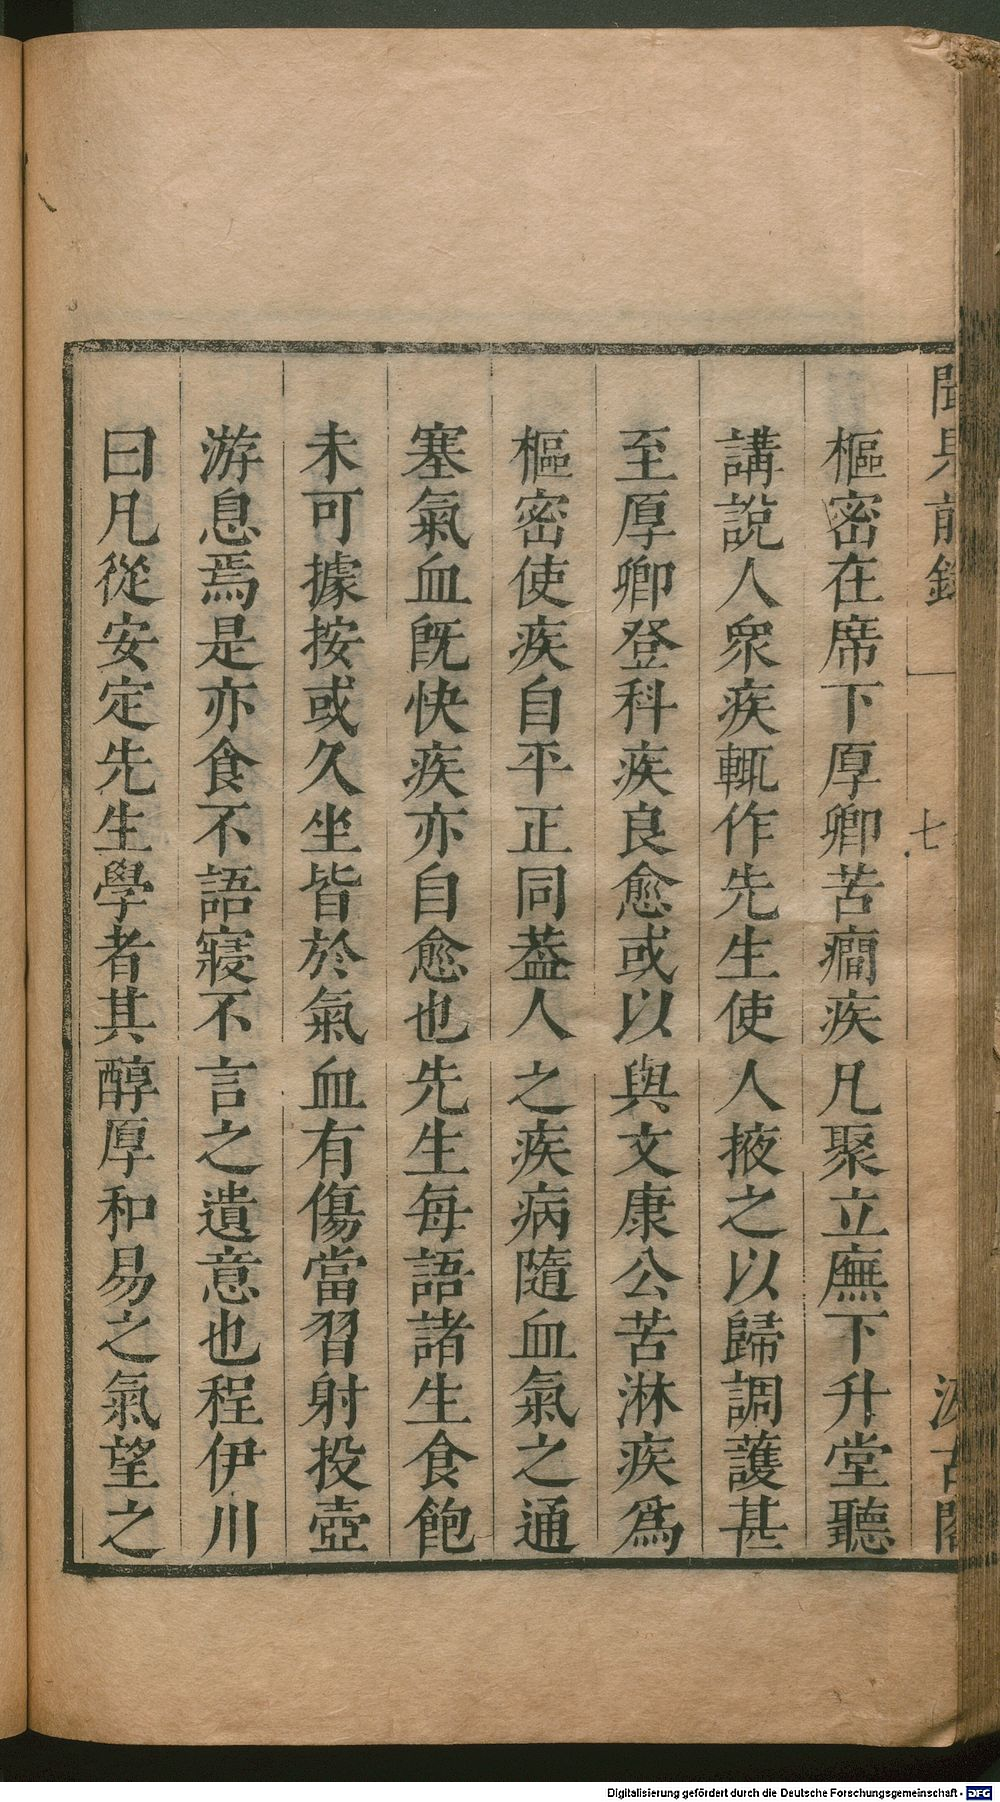 聞見前錄
七
汲古閣
樞密在席下厚卿苦癎疾凡聚立廡下升堂聽
講說人衆疾輒作先生使人掖之以歸調護甚
至厚卿登科疾良愈或以與文康公苦淋疾爲
樞密使疾自平正同葢人之疾病隨血氣之通
塞氣血旣快疾亦自愈也先生每語諸生食飽
未可據按或久坐皆於氣血有傷當習射投壺
游息焉是亦食不語寢不言之遺意也程伊川
曰凡從安定先生學者其醇厚和易之氣望之
Digitalisierung gefördert durch die Deutsche Forschungsgemeinschaft - DFG